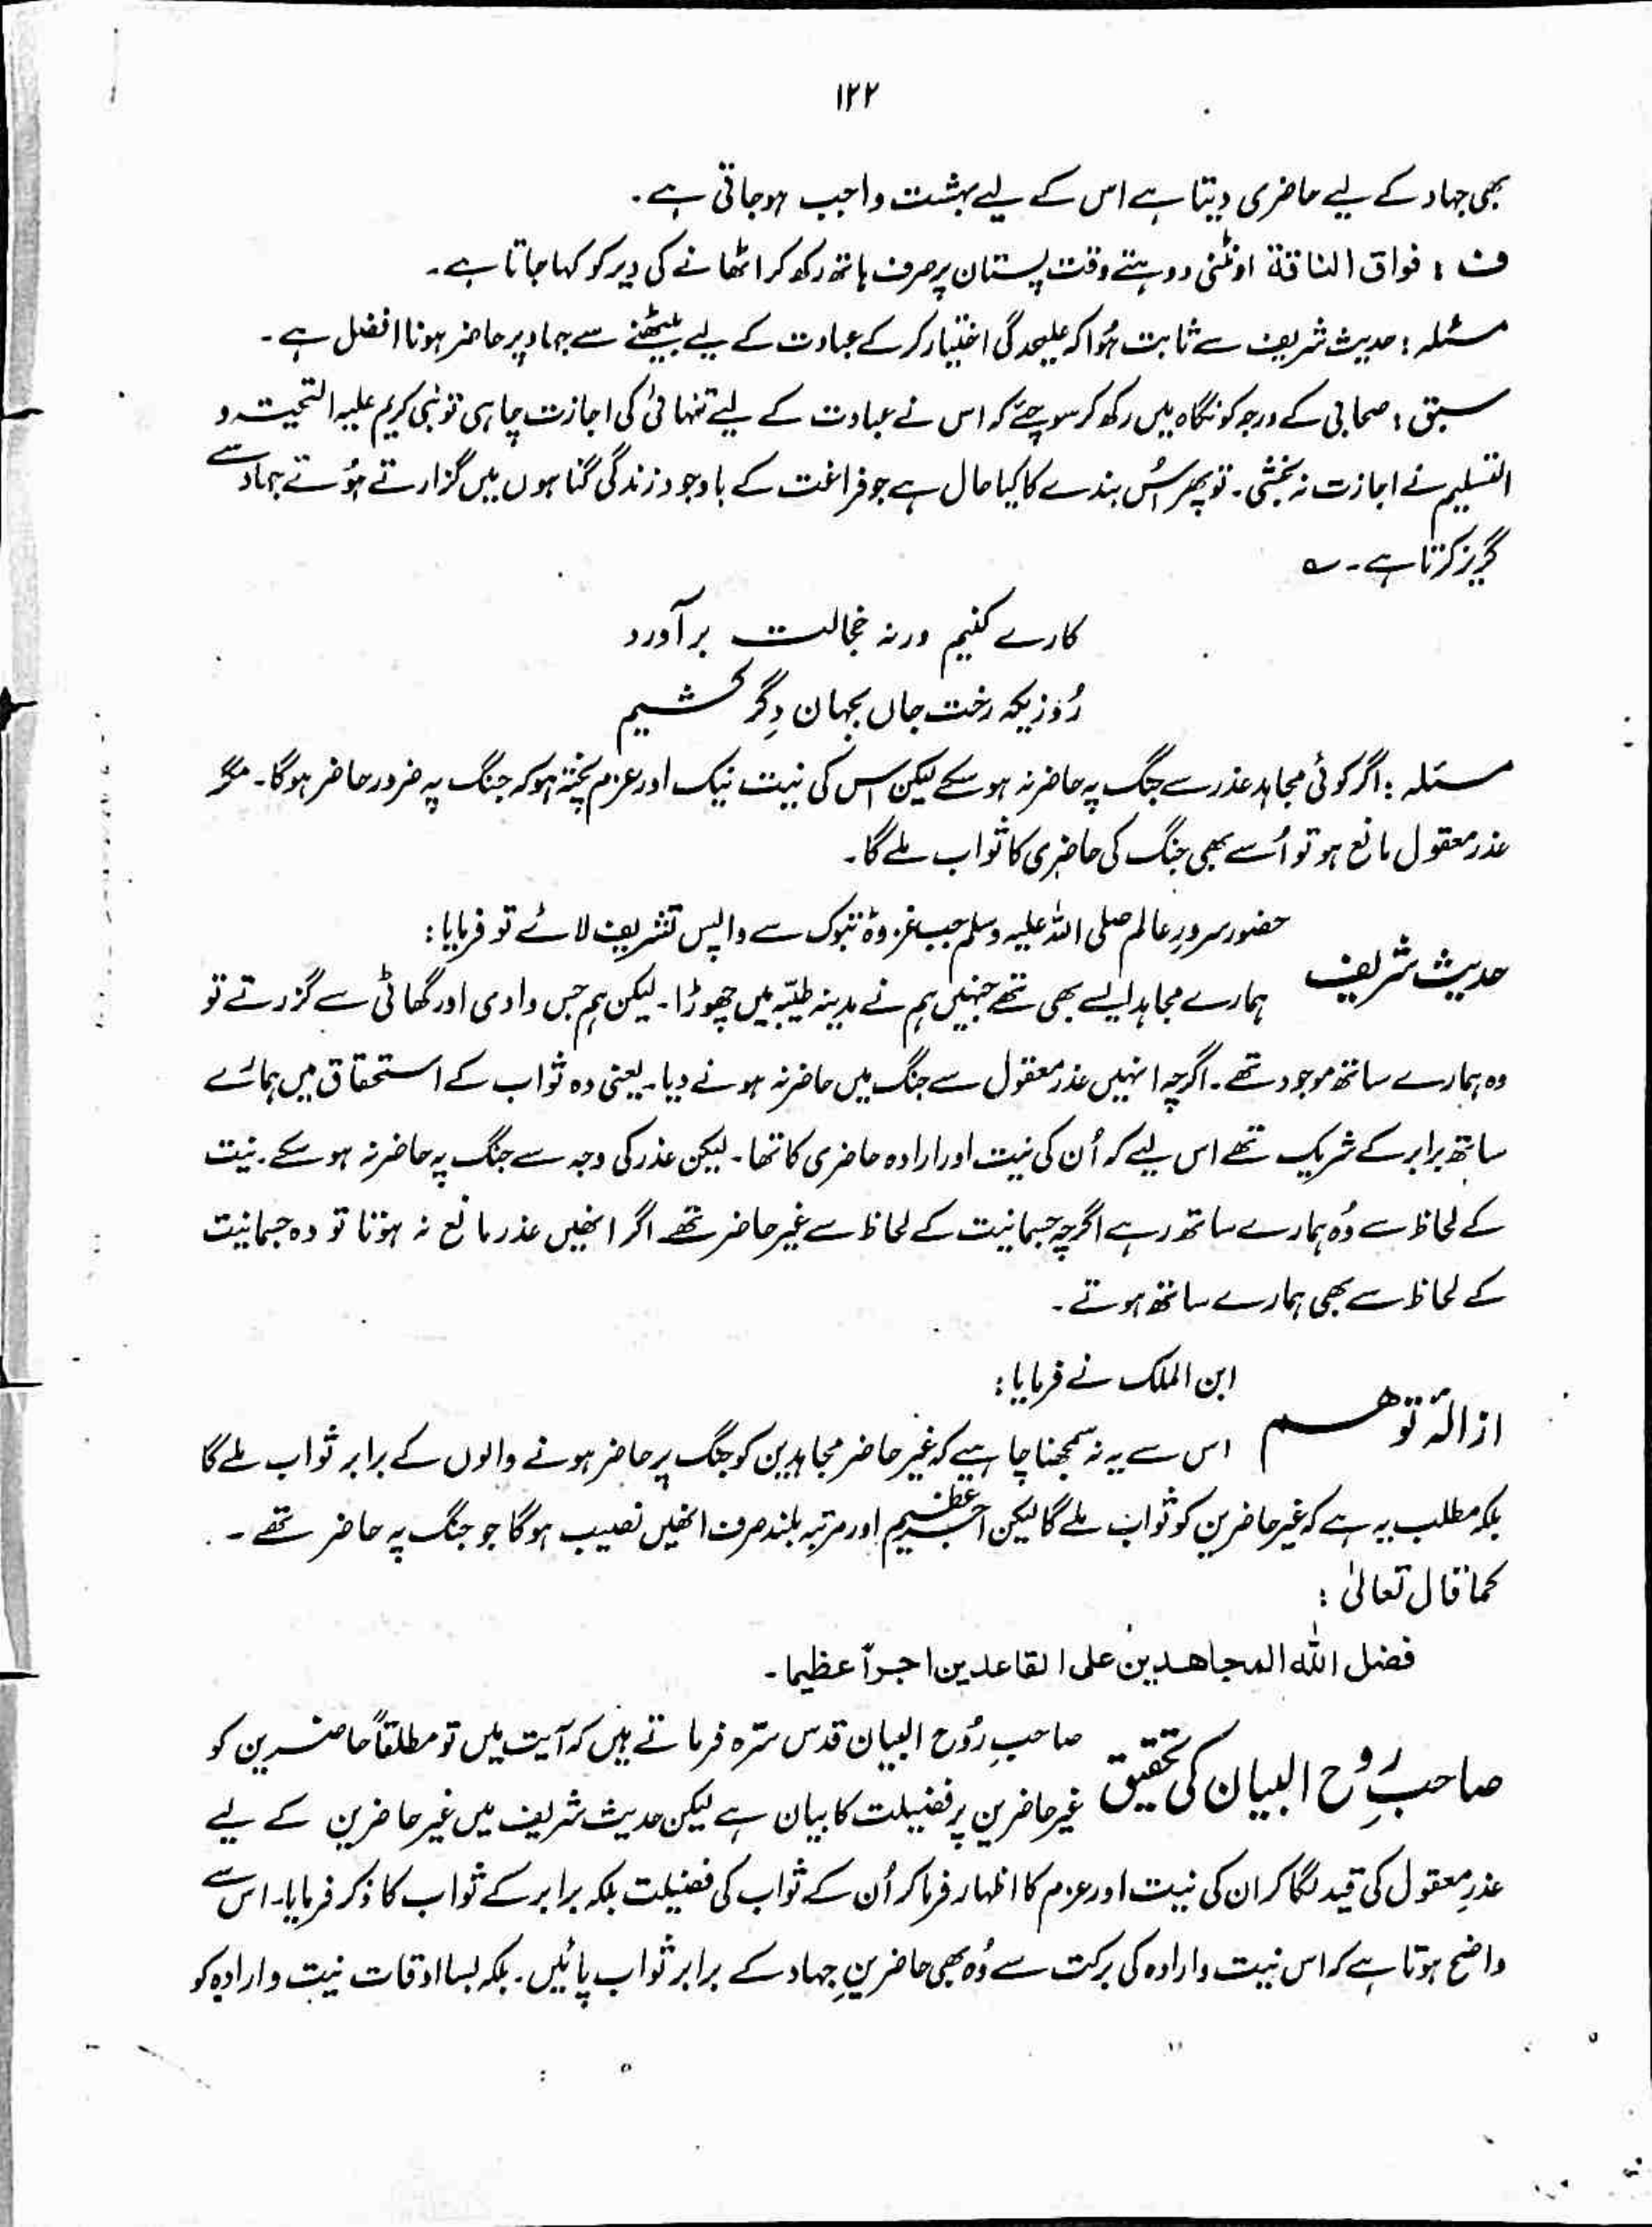 ۱۲۲
بھی جہاد کے لیے حاضری دیتا ہے اس کے لیے بہشت واجب ہوجاتی ہے۔
ف : فواق الناقۃ اونٹنی دوہتے وقت پستان پر صرف ہاتھ رکھ کر اٹھانے کی دیر کو کہا جاتا ہے۔
مسئلہ : حدیث شریف سے ثابت ہُوا کہ علیحدگی اختیار کر کے عبادت کے لیے بیٹھنے سے جہاد پر حاضر ہونا افضل ہے۔
سبق : صحابی کے درجہ کو نگاہ میں رکھ کر سوچیے کہ اس نے عبادت کے لیے تنہائی کی اجازت چاہی تو نبی کریم علیہ التحیتہ و
التسلیم نے اجازت نہ بخشی۔ تو پھر اُس بندے کا کیا حال ہے جو فراغت کے باوجود زندگی گناہوں میں گزارتے ہُوئے جہاد سے
گریز کرتا ہے۔ ؎
کارے کنیم ورنہ خجالت برآورد
رُوزیکہ رخت جاں بجہان دِگر کشیم
مسئلہ : اگر کوئی مجاہد عذر سے جنگ پہ حاضر نہ ہو سکے لیکن اس کی نیت نیک اور عزم پختہ ہو کہ جنگ پہ ضرور حاضر ہوگا۔ مگر
عذر معقول مانع ہو تو اُسے بھی جنگ کی حاضری کا ثواب ملے گا۔
حدیث شریف
حضور سرورِ عالم صلی اللہ علیہ وسلم جب غزوۂ تبوک سے واپس تشریف لائے تو فرمایا :
ہمارے مجاہد ایسے بھی تھے جنہیں ہم نے مدینہ طیّبہ میں چھوڑا۔ لیکن ہم جس وادی اور گھاٹی سے گزرتے تو
وہ ہمارے ساتھ موجود تھے۔ اگرچہ انہیں عذر معقول سے جنگ میں حاضر نہ ہونے دیا۔ یعنی وہ ثواب کے استحقاق میں ہمارے
ساتھ برابر کے شریک تھے اس لیے کہ اُن کی نیت اور ارادہ حاضری کا تھا۔ لیکن عذر کی وجہ سے جنگ پہ حاضر نہ ہو سکے۔ نیت
کے لحاظ سے وُہ ہمارے ساتھ رہے اگرچہ جسمانیت کے لحاظ سے غیر حاضر تھے اگر انھیں عذر مانع نہ ہوتا تو وہ جسمانیت
کے لحاظ سے بھی ہمارے ساتھ ہوتے۔
ازالۂ توھم
ابن الملک نے فرمایا :
اس سے یہ نہ سمجھنا چاہیے کہ غیر حاضر مجاہدین کو جنگ پر حاضر ہونے والوں کے برابر ثواب ملے گا
بلکہ مطلب یہ ہے کہ غیر حاضرین کو ثواب ملے گا لیکن اجر عظیم اور مرتبہ بلند صرف انھیں نصیب ہوگا جو جنگ پہ حاضر تھے۔
کما قال تعالیٰ :
فضل اللہ المجاھدین علی القاعدین اجراً عظیما۔
صاحبِ روح البیان کی تحقیق
صاحبِ رُوح البیان قدس سرّہ فرماتے ہیں کہ آیت میں تو مطلقاً حاضرین کو
غیر حاضرین پر فضیلت کا بیان ہے لیکن حدیث شریف میں غیر حاضرین کے لیے
عذرِ معقول کی قید لگا کر ان کی نیت اور عزم کا اظہار فرما کر اُن کے ثواب کی فضیلت بلکہ برابر کے ثواب کا ذکر فرمایا۔ اس سے
واضح ہوتا ہے کہ اس نیت و ارادہ کی برکت سے وُہ بھی حاضرینِ جہاد کے برابر ثواب پائیں۔ بلکہ بسا اوقات نیت و ارادہ کو